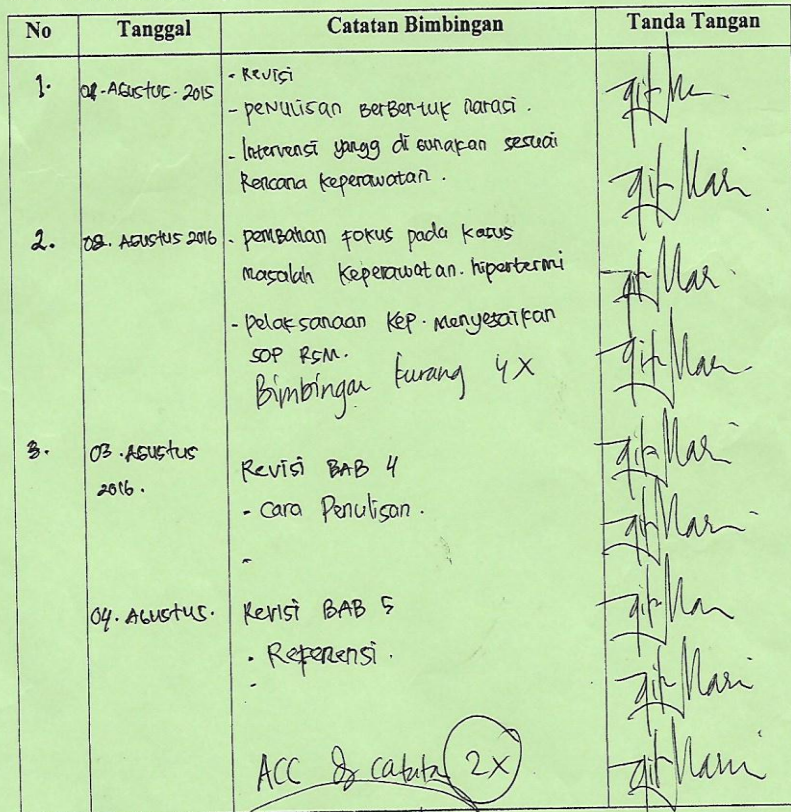 No Tanggal Catatan Bimbingan Tanda Tangan
1. 01-Agustus-2015 - Revisi
- penulisan Berbertuk narasi.
- Intervensi yangg di gunakan sesuai
Rencana keperawatan.
2. 02. Agustus 2016 - pembahan fokus pada kasus
masalah keperawatan. hipertermi
- pelaksanaan kep. menyesaikan
SOP RSM.
Bimbingan kurang 4x
3. 03. Agustus Revisi BAB 4
2016. - Cara Penulisan.
-
04. Agustus. Revisi BAB 5
- Referensi.
-
ACC catata 2x